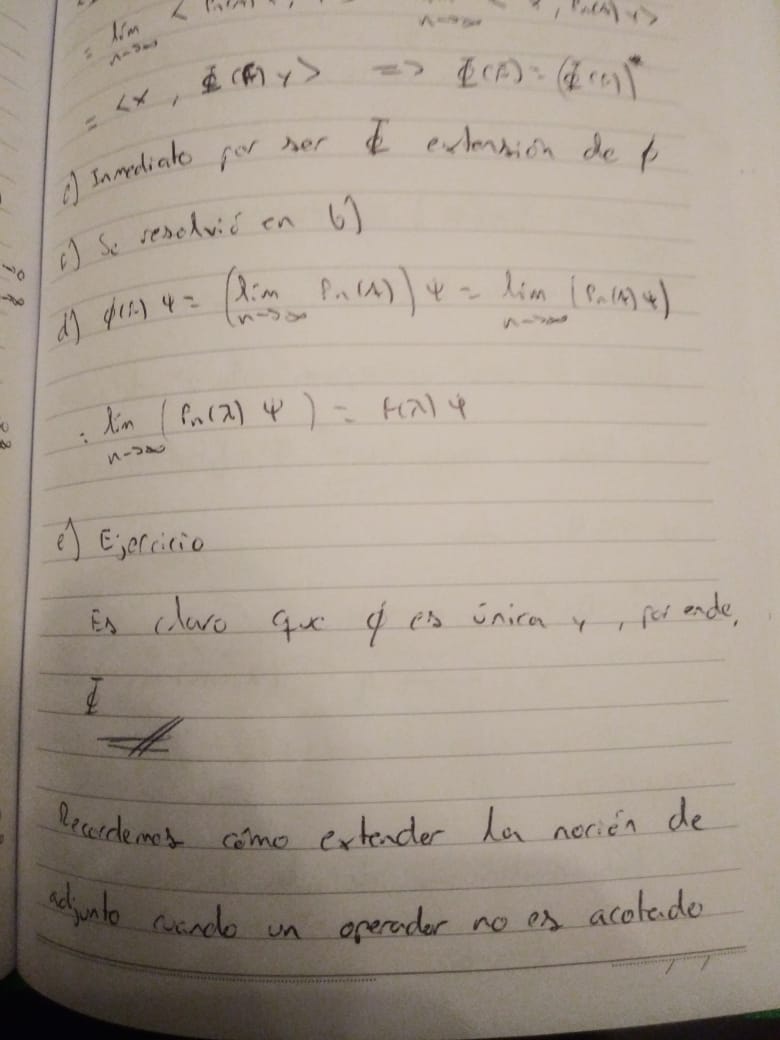 = lim n→∞ < Pn(A) , Pn(A) y>
n→∞
= <x, Φ(f) y> => Φ(f̄) = (Φ(f))*
c) Inmediato por ser Φ extensión de φ
c) Se resolvió en b)
d) φ(f) ψ = (lim n→∞ Pn(A)) ψ = lim n→∞ (Pn(A) ψ)
= lim n→∞ (Pn(λ) ψ) = f(λ) ψ
e) Ejercicio
Es claro que φ es única y, por ende,
Φ
Recordemos cómo extender la noción de
adjunto cuando un operador no es acotado